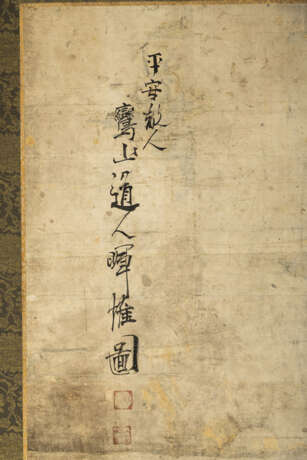 平安散人
鸞山道人暉惟圖